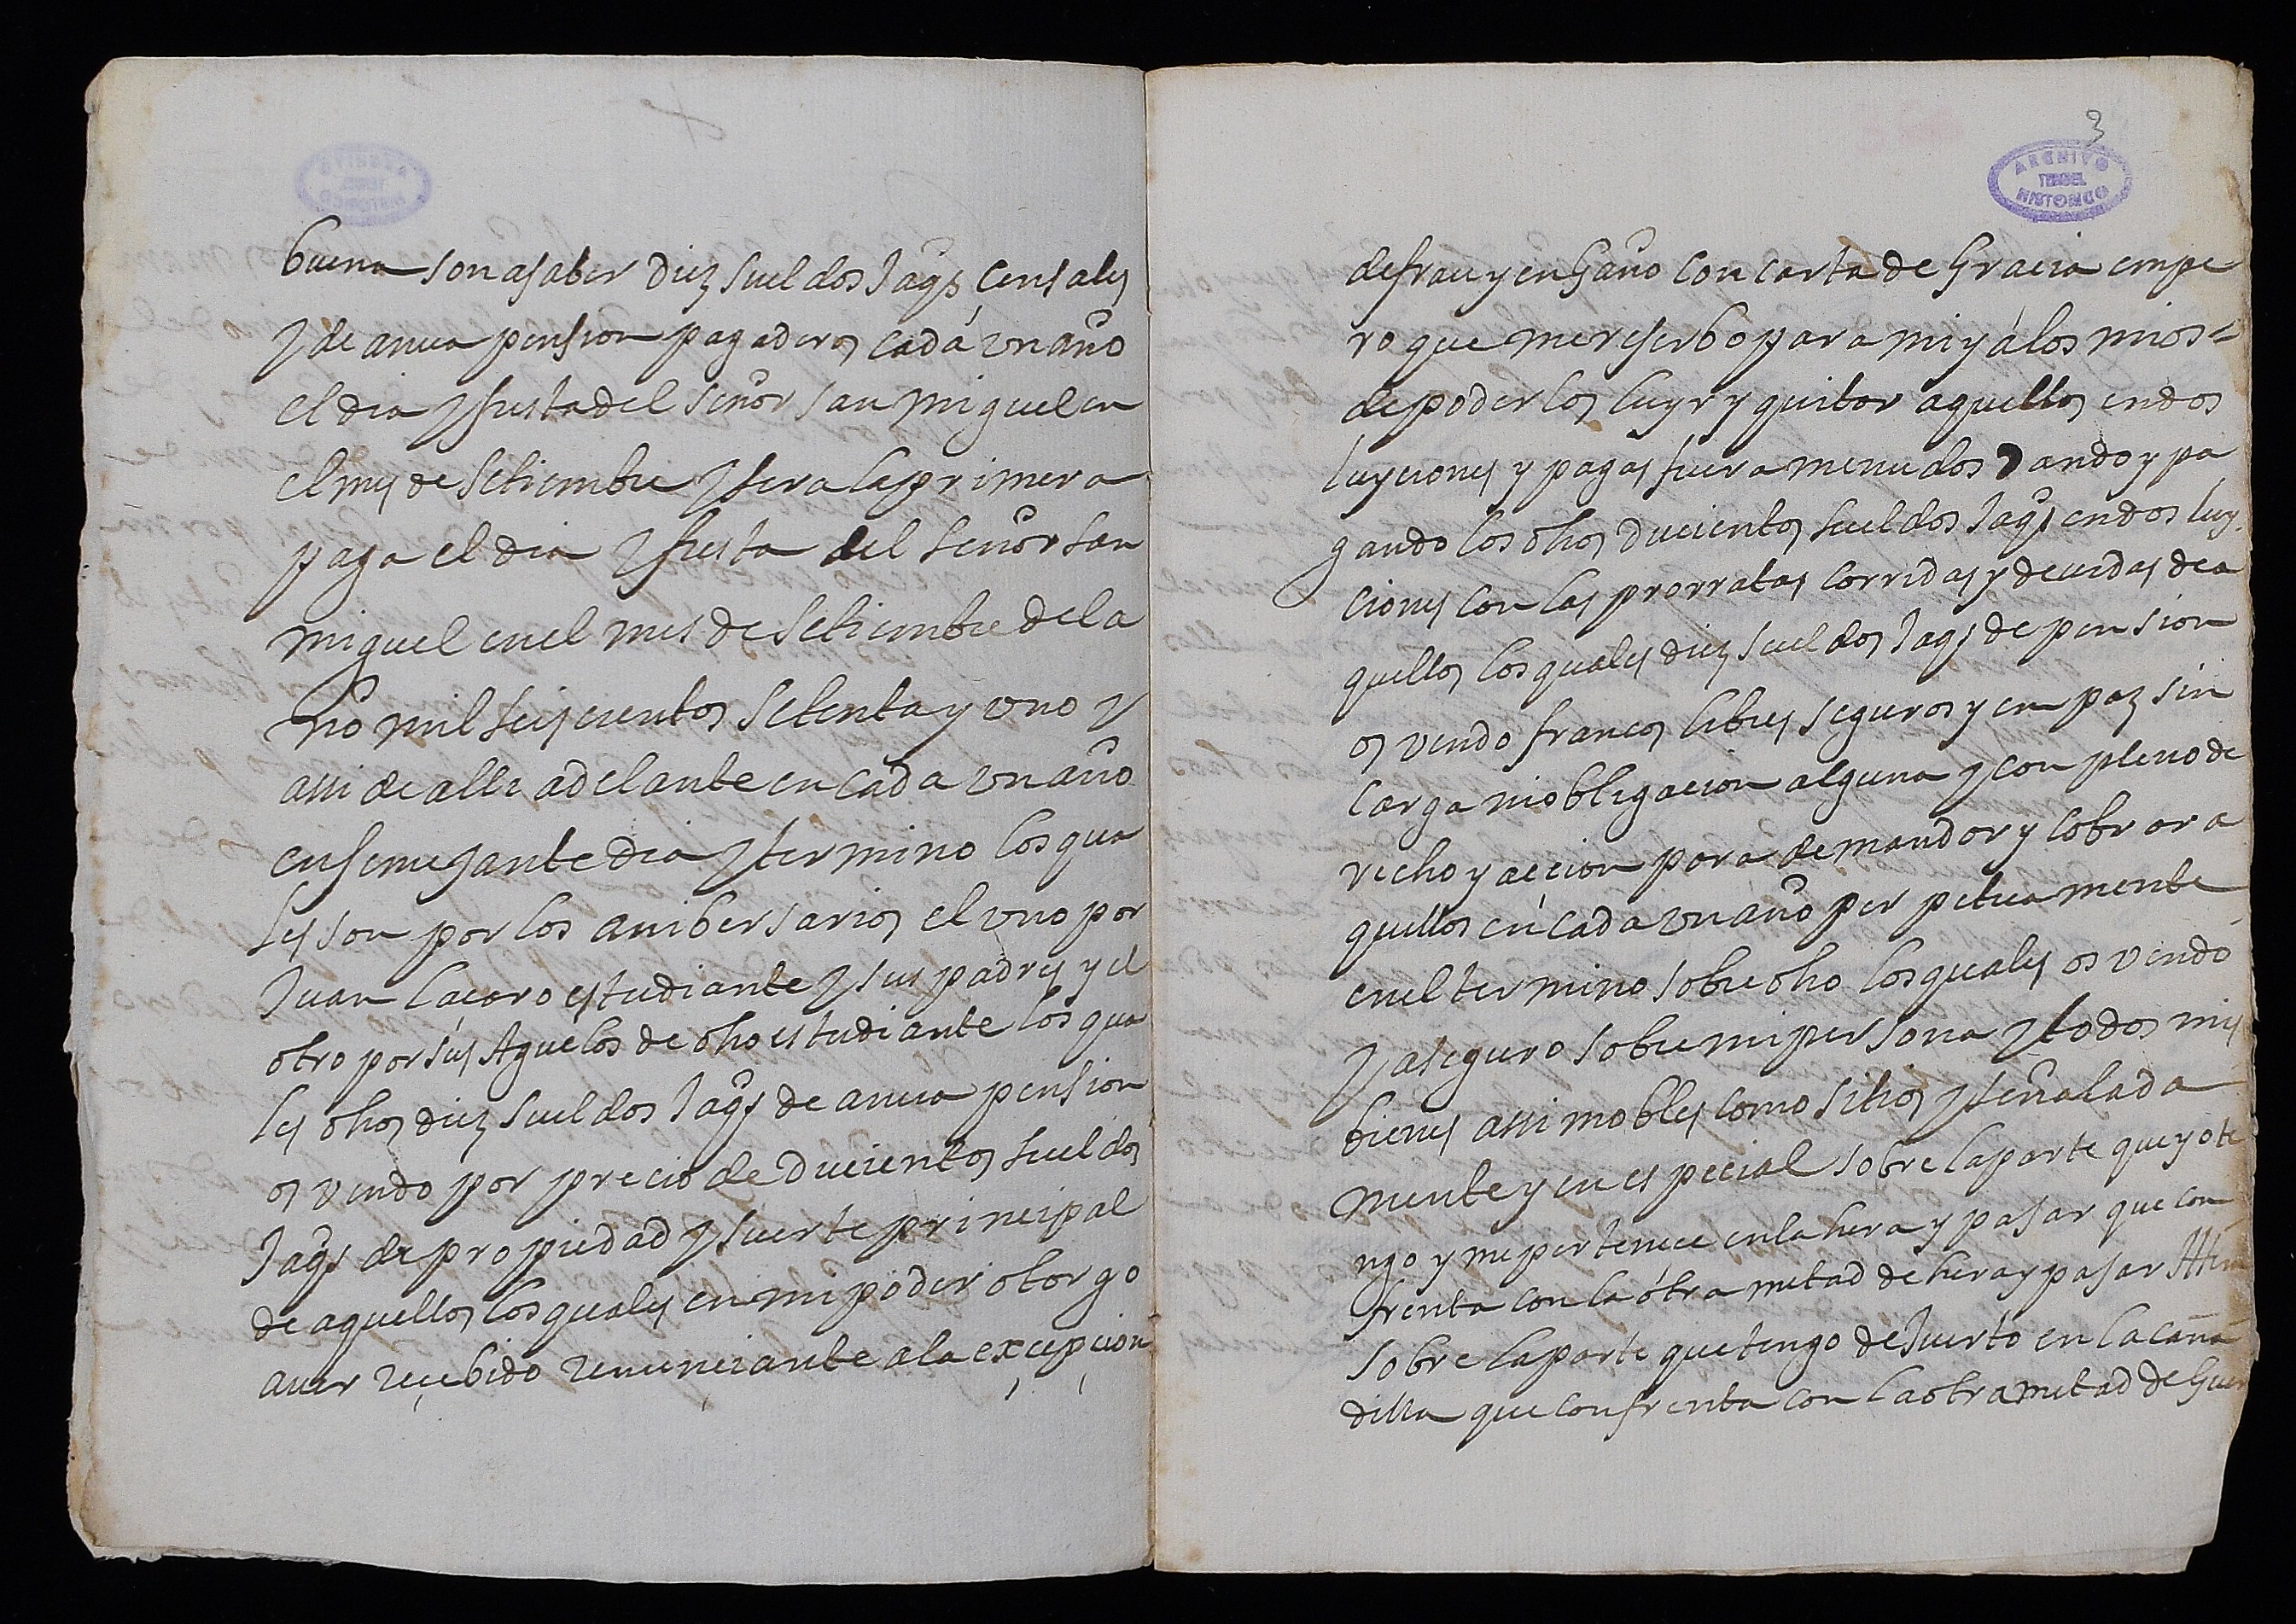 buena son a saber diez sueldos Jaqs censales
y de anua pension pagaderos cada un año
el dia y fiesta del Señor san miguel en
el mes de Setiembre y sera la primera
paga el dia y fiesta del Señor san
miguel en el mes de Setiembre del a
ño mil seiscientos Setenta y uno y
assi de alli adelante en cada un año
en semejante dia y termino los qua
les son por los anibersarios el uno por
Juan Laçaro estudiante y sus padres y el
otro por sus Aguelos de dho estudiante los qua
les dhos diez sueldos Jaqs de anua pension
os vendo por precio de ducientos sueldos
Jaqs de propiedad y suerte principal
de aquellos los quales en mi poder otorgo
auer reçebido renunciante a la excepcion
3
ARCHIVO
TERUEL
HISTORICO
de frau y engaño con carta de Gracia empe
ro que me reserbo para mi y á los mios
de poderlos luyr y quitar aquellos en dos
luyciones y pagas fuera menudos dando y pa
gando los dhos ducientos sueldos Jaqs en dos luy
ciones con las prorratas corridas y deuidas de a
quellos los quales diez sueldos Jaqs de pension
os vendo francos libres seguros y en paz sin
carga ni obligacion alguna y con pleno de
recho y accion para demandar y cobrar a
quellos en cada un año perpetuamente
en el termino sobredho los quales os vendo
y aseguro sobre mi persona y todos mis
bienes assi mobles como sitios y señalada
mente y en especial sobre la parte que yo te
ngo y me pertenece en la hera y pajar que con
frenta con la otra mitad de hera y pajar Ittem
sobre la parte que tengo de huerto en la caña
dilla que confrenta con la otra mitad de Guer